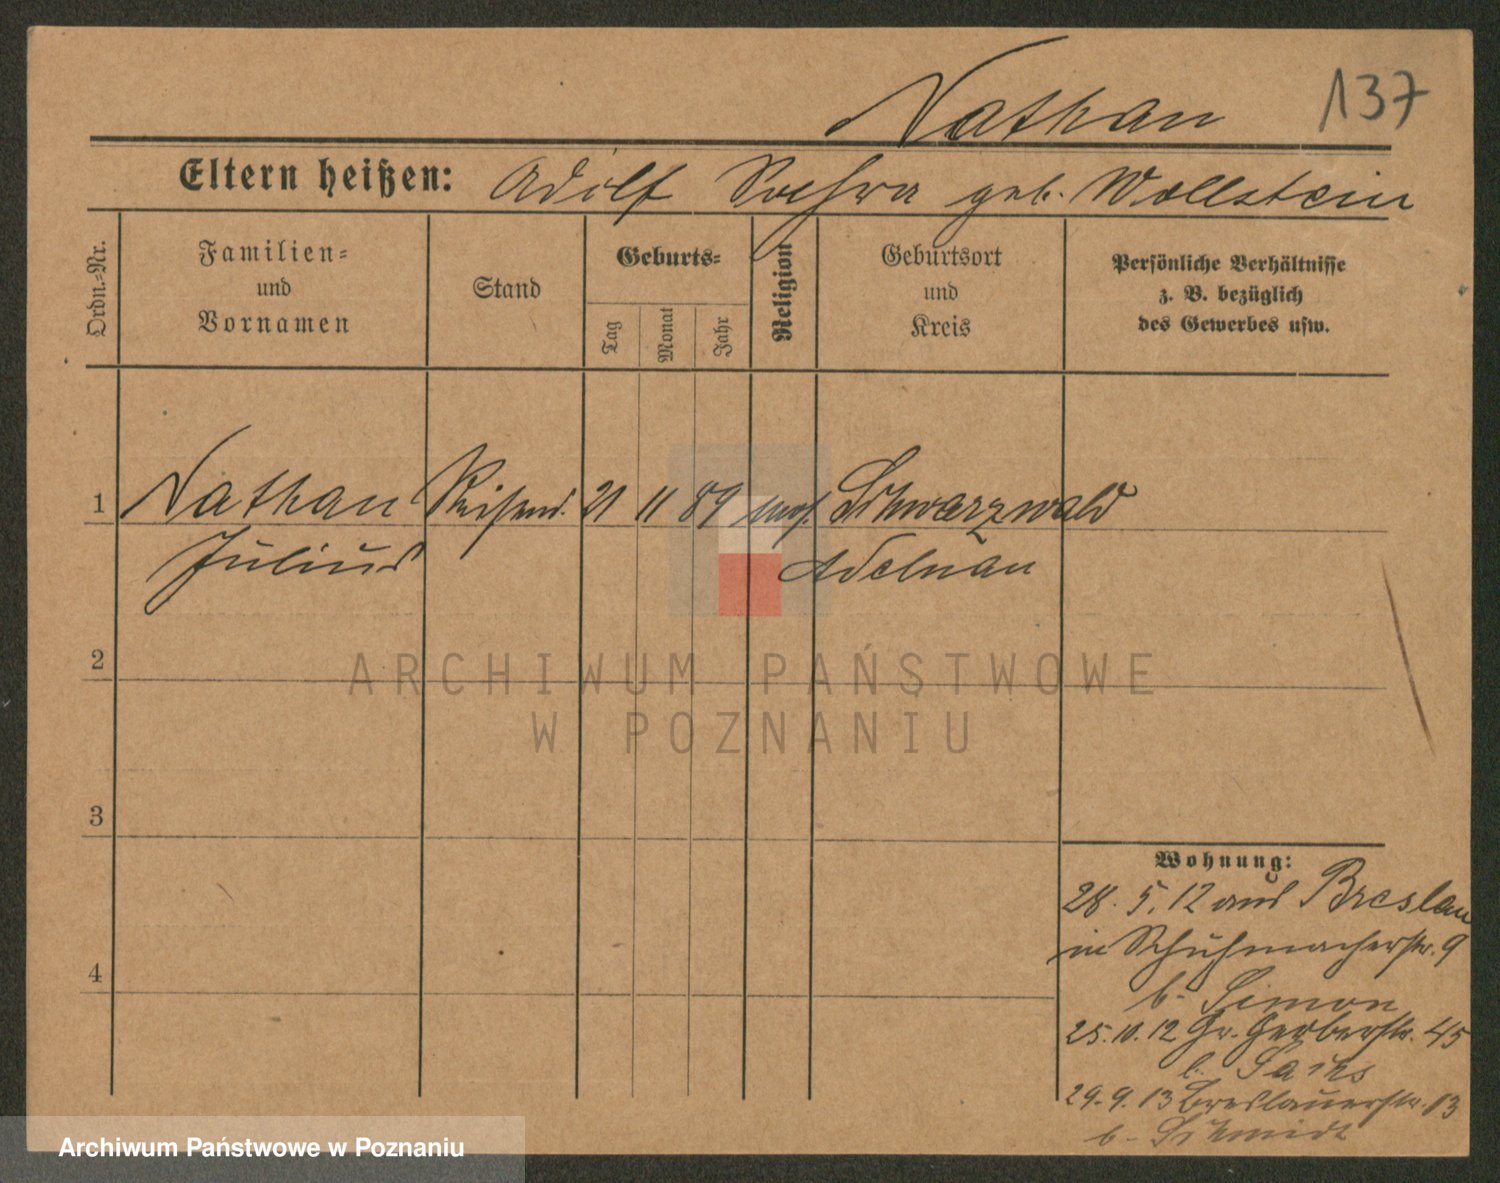 Nathan 137
Eltern heißen: Adolf geb. Wollstein
Ordn.-Nr.
Familien-
und
Vornamen
Stand
Geburts-
Tag
Monat
Jahr
Religion
Geburtsort
und
Kreis
Persönliche Verhältnisse
z. B. bezüglich
des Gewerbes usw.
1 Nathan Reisend. 21 11 89 mos. Schwarzwald
Julius Adelnau
2
ARCHIWUM PAŃSTWOWE
W POZNANIU
3
4
Wohnung:
28. 5. 12 aus Breslau
in Schuhmacherstr. 9
b. Simon
25. 10. 12 Gr. Gerberstr. 45
b. Sachs
29. 9. 13 Breslauerstr. 13
b. Schmidt
Archiwum Państwowe w Poznaniu